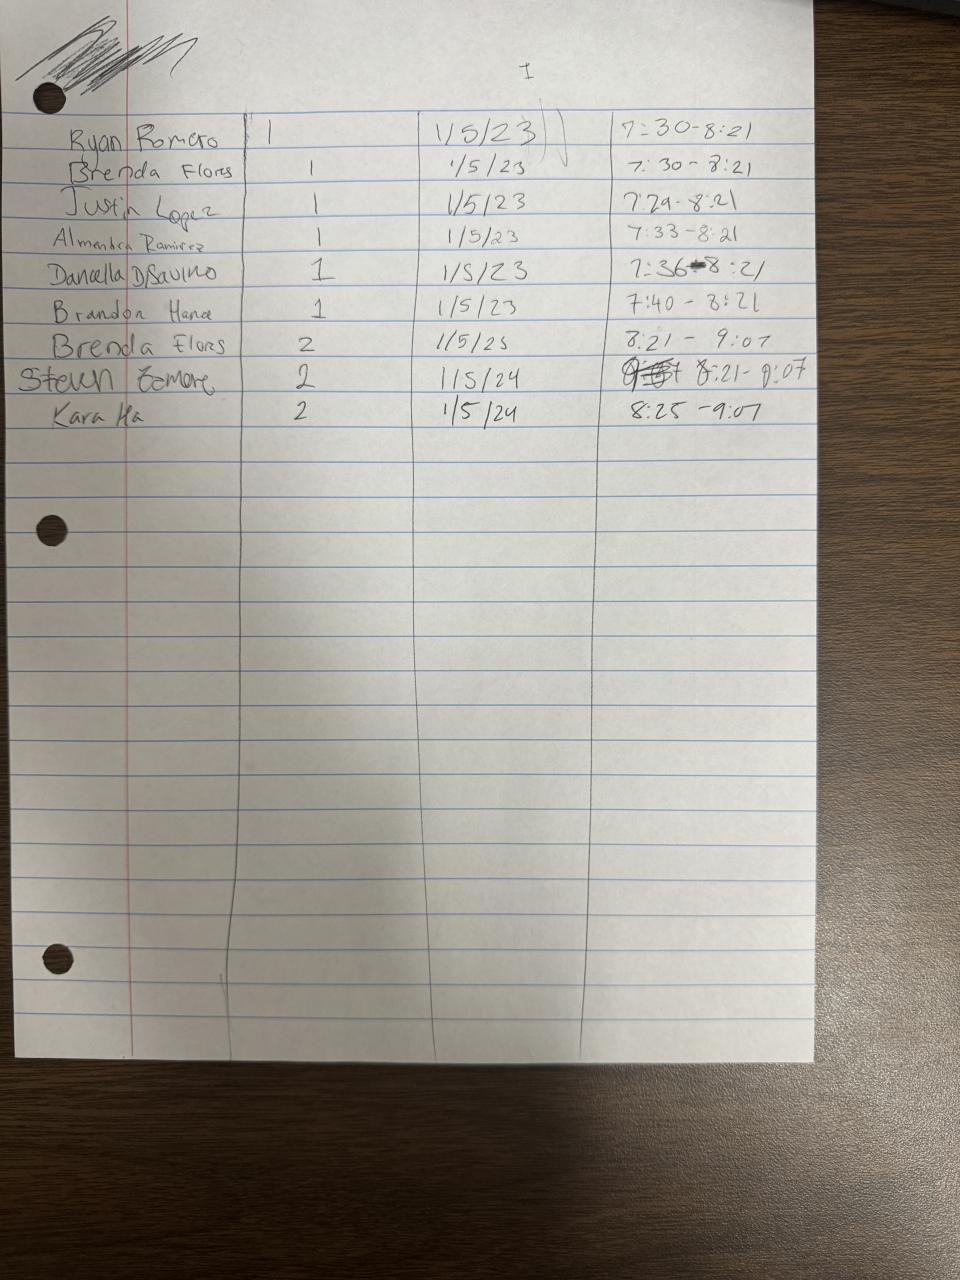 I
Ryan Romero 1 1/5/23 7:30-8:21
Brenda Flores 1 1/5/23 7:30-8:21
Justin Lopez 1 1/5/23 7:29-8:21
Almendra Ramirez 1 1/5/23 7:33-8:21
1 1/5/23 7:36-8:21
Brandon 1 1/5/23 7:40-8:21
Brenda Flores 2 1/5/23 8:21-9:07
2 1/5/24 8:21-9:07
Kara Ha 2 1/5/24 8:25-9:07